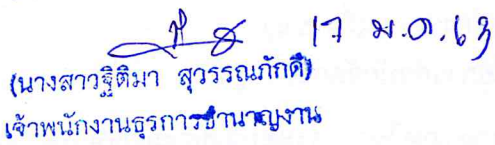 17 ม.ค. 63
(นางสาวฐิติมา สุวรรณภักดี)
เจ้าพนักงานธุรการชำนาญงาน